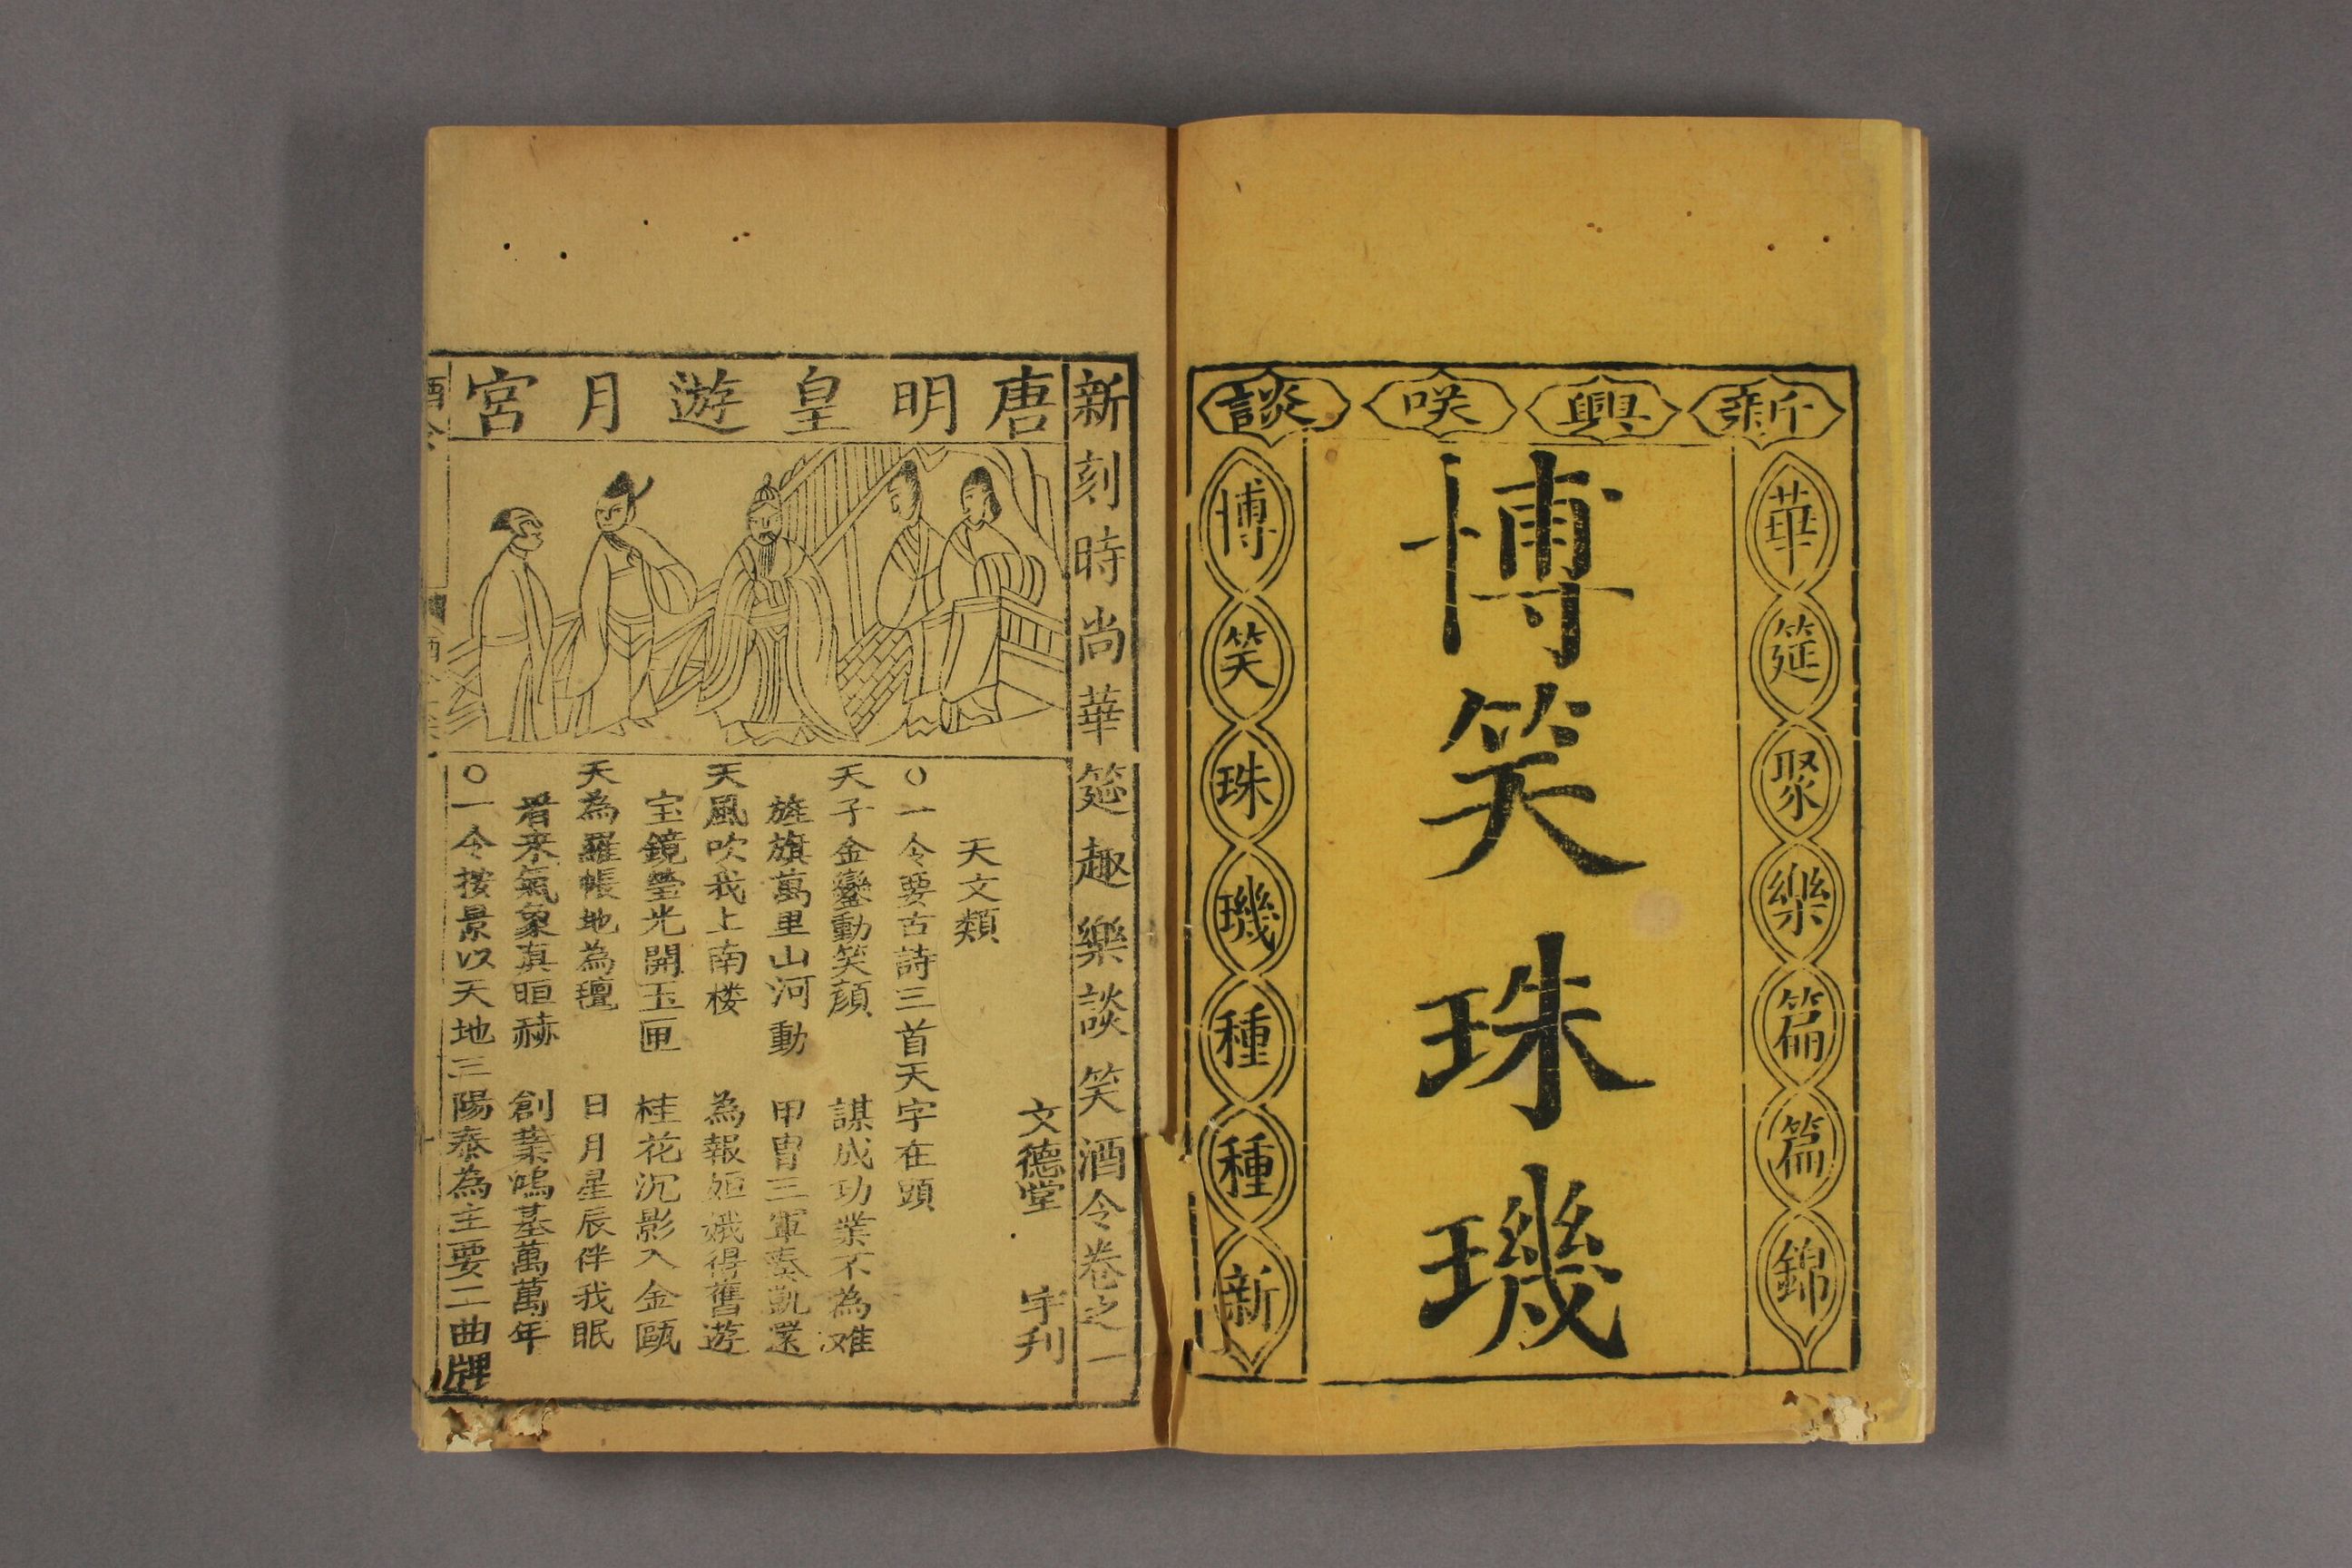 新興咲談
華筵聚樂篇篇錦
博笑珠璣
博笑珠璣種種新
新刻時尚華筵趣樂談笑酒令卷之一
唐明皇遊月宮
文德堂 字刊
天文類
○一令要古詩三首天字在頭
天子金鑾動笑顔 謀成功業不為难
旌旗萬里山河動 甲冑三軍奏凱還
天風吹我上南楼 為報姮娥得舊遊
宝鏡瑩光開玉匣 桂花沉影入金甌
天為羅帳地為氊 日月星辰伴我眠
看來氣象真晅赫 創業鴻基萬萬年
○一令按景以天地三陽泰為主要二曲牌